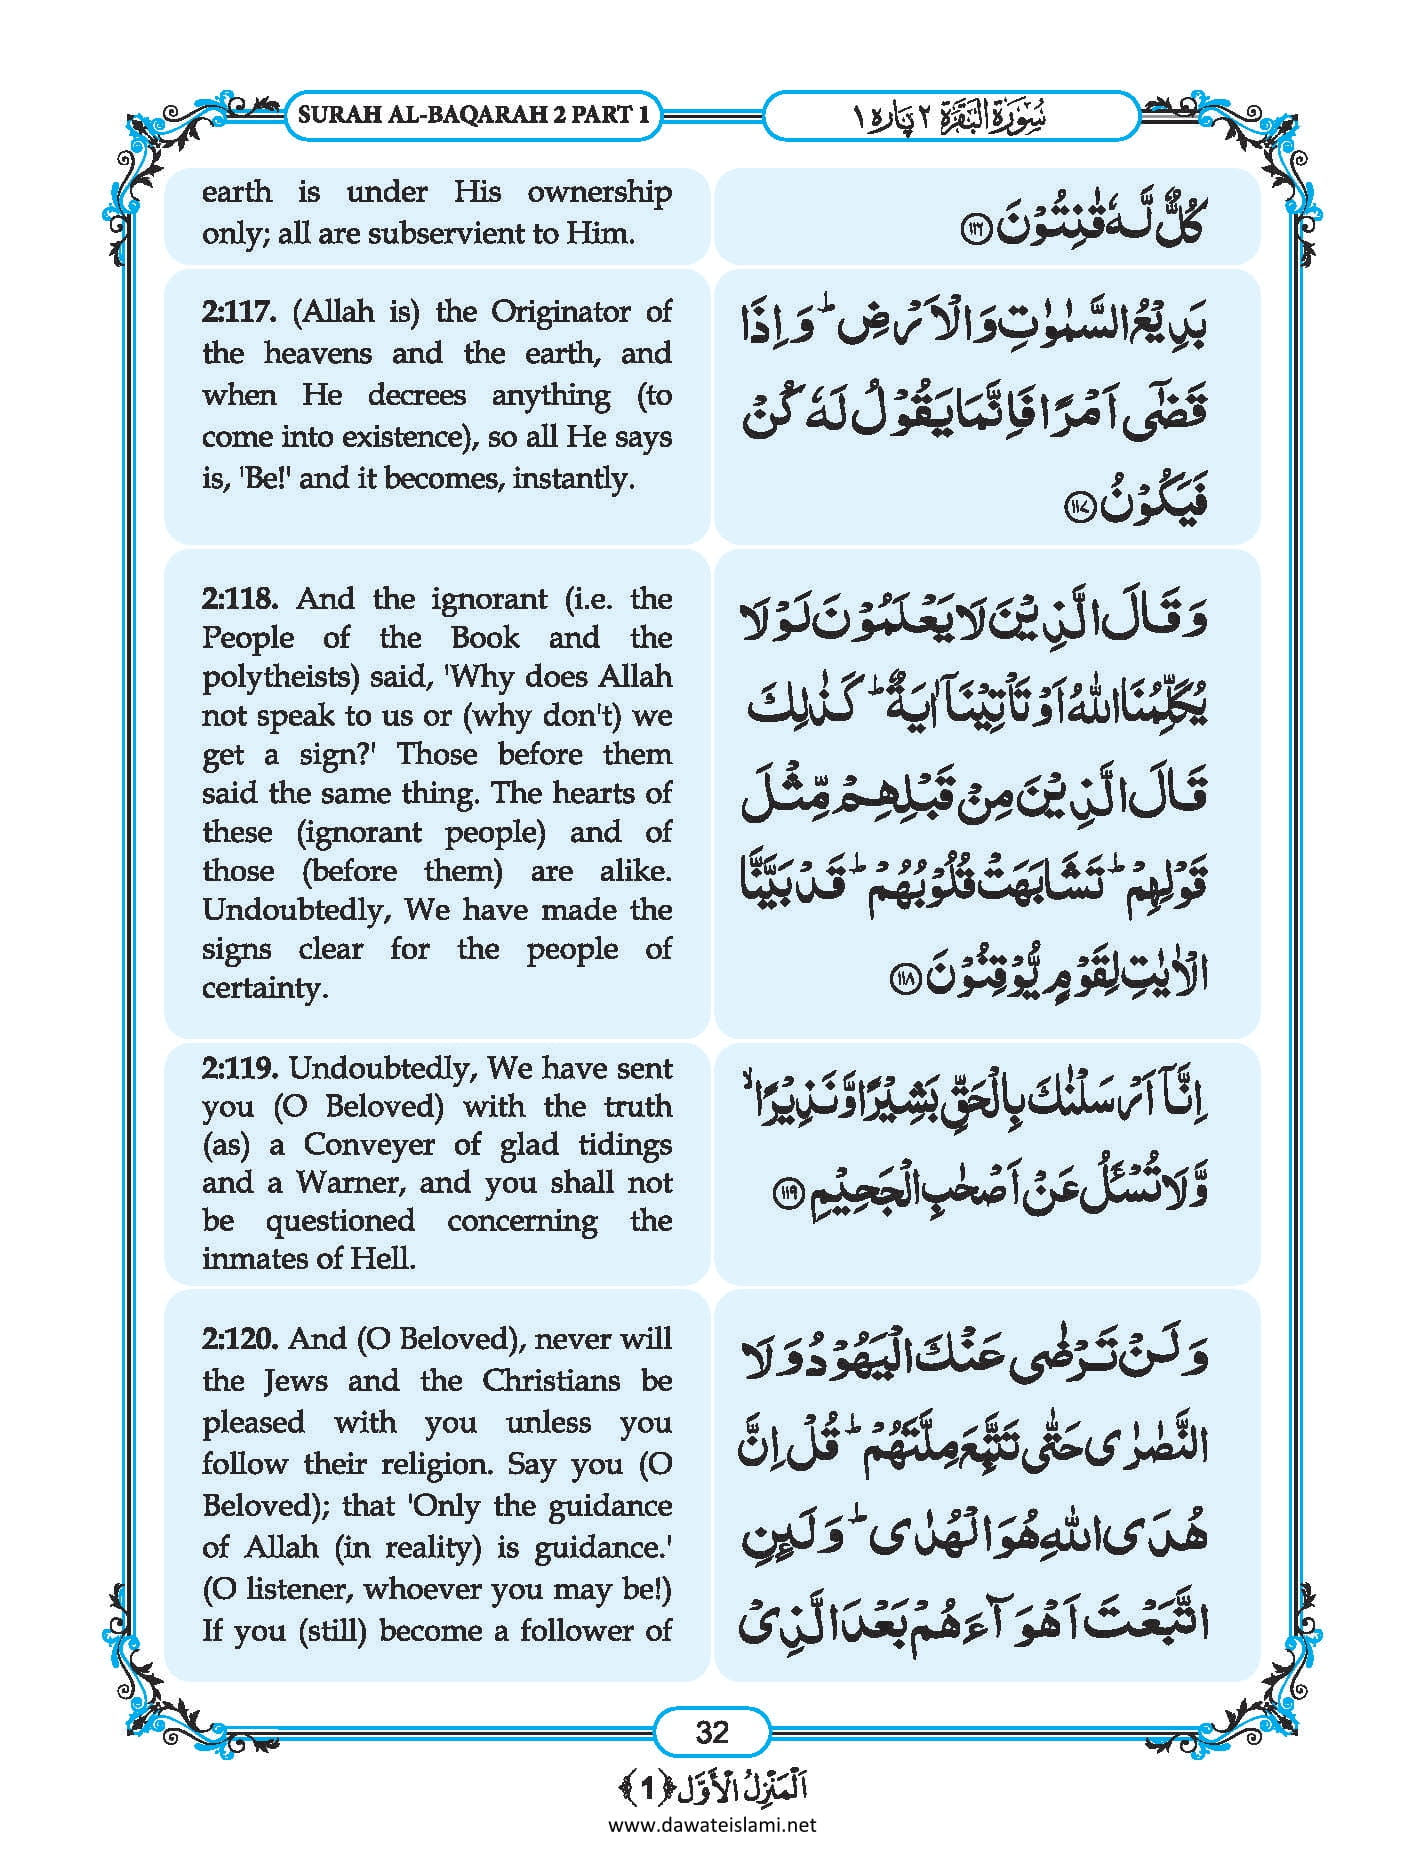 SURAH AL-BAQARAH 2 PART 1
سُوۡرَۃُ الۡبَقَرَۃِ ٢ پارہ ١
earth is under His ownership
only; all are subservient to Him.
کُلٌّ لَّہٗ قٰنِتُوۡنَ ﴿۱۱۶﴾
2:117. (Allah is) the Originator of
the heavens and the earth, and
when He decrees anything (to
come into existence), so all He says
is, 'Be!' and it becomes, instantly.
بَدِیۡعُ السَّمٰوٰتِ وَ الۡاَرۡضِ ؕ وَ اِذَا
قَضٰۤی اَمۡرًا فَاِنَّمَا یَقُوۡلُ لَہٗ کُنۡ
فَیَکُوۡنُ ﴿۱۱۷﴾
2:118. And the ignorant (i.e. the
People of the Book and the
polytheists) said, 'Why does Allah
not speak to us or (why don't) we
get a sign?' Those before them
said the same thing. The hearts of
these (ignorant people) and of
those (before them) are alike.
Undoubtedly, We have made the
signs clear for the people of
certainty.
وَ قَالَ الَّذِیۡنَ لَا یَعۡلَمُوۡنَ لَوۡ لَا
یُکَلِّمُنَا اللّٰہُ اَوۡ تَاۡتِیۡنَاۤ اٰیَۃٌ ؕ کَذٰلِکَ
قَالَ الَّذِیۡنَ مِنۡ قَبۡلِہِمۡ مِّثۡلَ
قَوۡلِہِمۡ ؕ تَشَابَہَتۡ قُلُوۡبُہُمۡ ؕ قَدۡ بَیَّنَّا
الۡاٰیٰتِ لِقَوۡمٍ یُّوۡقِنُوۡنَ ﴿۱۱۸﴾
2:119. Undoubtedly, We have sent
you (O Beloved) with the truth
(as) a Conveyer of glad tidings
and a Warner, and you shall not
be questioned concerning the
inmates of Hell.
اِنَّاۤ اَرۡسَلۡنٰکَ بِالۡحَقِّ بَشِیۡرًا وَّ نَذِیۡرًا ۙ
وَّ لَا تُسۡـَٔلُ عَنۡ اَصۡحٰبِ الۡجَحِیۡمِ ﴿۱۱۹﴾
2:120. And (O Beloved), never will
the Jews and the Christians be
pleased with you unless you
follow their religion. Say you (O
Beloved); that 'Only the guidance
of Allah (in reality) is guidance.'
(O listener, whoever you may be!)
If you (still) become a follower of
وَ لَنۡ تَرۡضٰی عَنۡکَ الۡیَہُوۡدُ وَ لَا
النَّصٰرٰی حَتّٰی تَتَّبِعَ مِلَّتَہُمۡ ؕ قُلۡ اِنَّ
ہُدَی اللّٰہِ ہُوَ الۡہُدٰی ؕ وَ لَئِنِ
اتَّبَعۡتَ اَہۡوَآءَہُمۡ بَعۡدَ الَّذِیۡ
32
اَلۡمَنۡزِلُ الۡاَوَّل ﴿1﴾
www.dawateislami.net